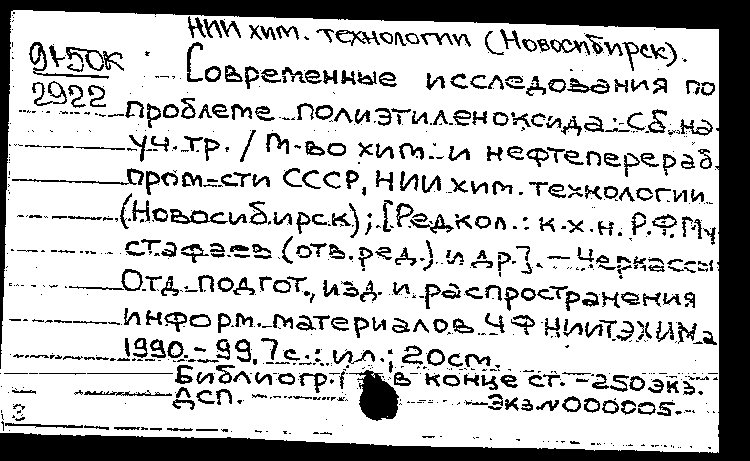 НИИ хим. технологии (Новосибирск).
9+50К
2922
Современные исследования по
проблеме полиэтиленоксида: Сб. на-
уч. тр. / М-во хим. и нефтеперераб.
пром-сти СССР, НИИ хим. технологии
(Новосибирск); [Редкол.: к.х.н. Р.Ф.Му
стафаев (отв. ред.) и др.]. - Черкассы:
Отд. подгот., изд. и распространения
информ. материалов ЧФ НИИТЭХИМа
1990. - 99,7 с.: ил.; 20см.
Библиогр. в конце ст. - 250 экз.
ДСП.
Экз. N 000005.
3